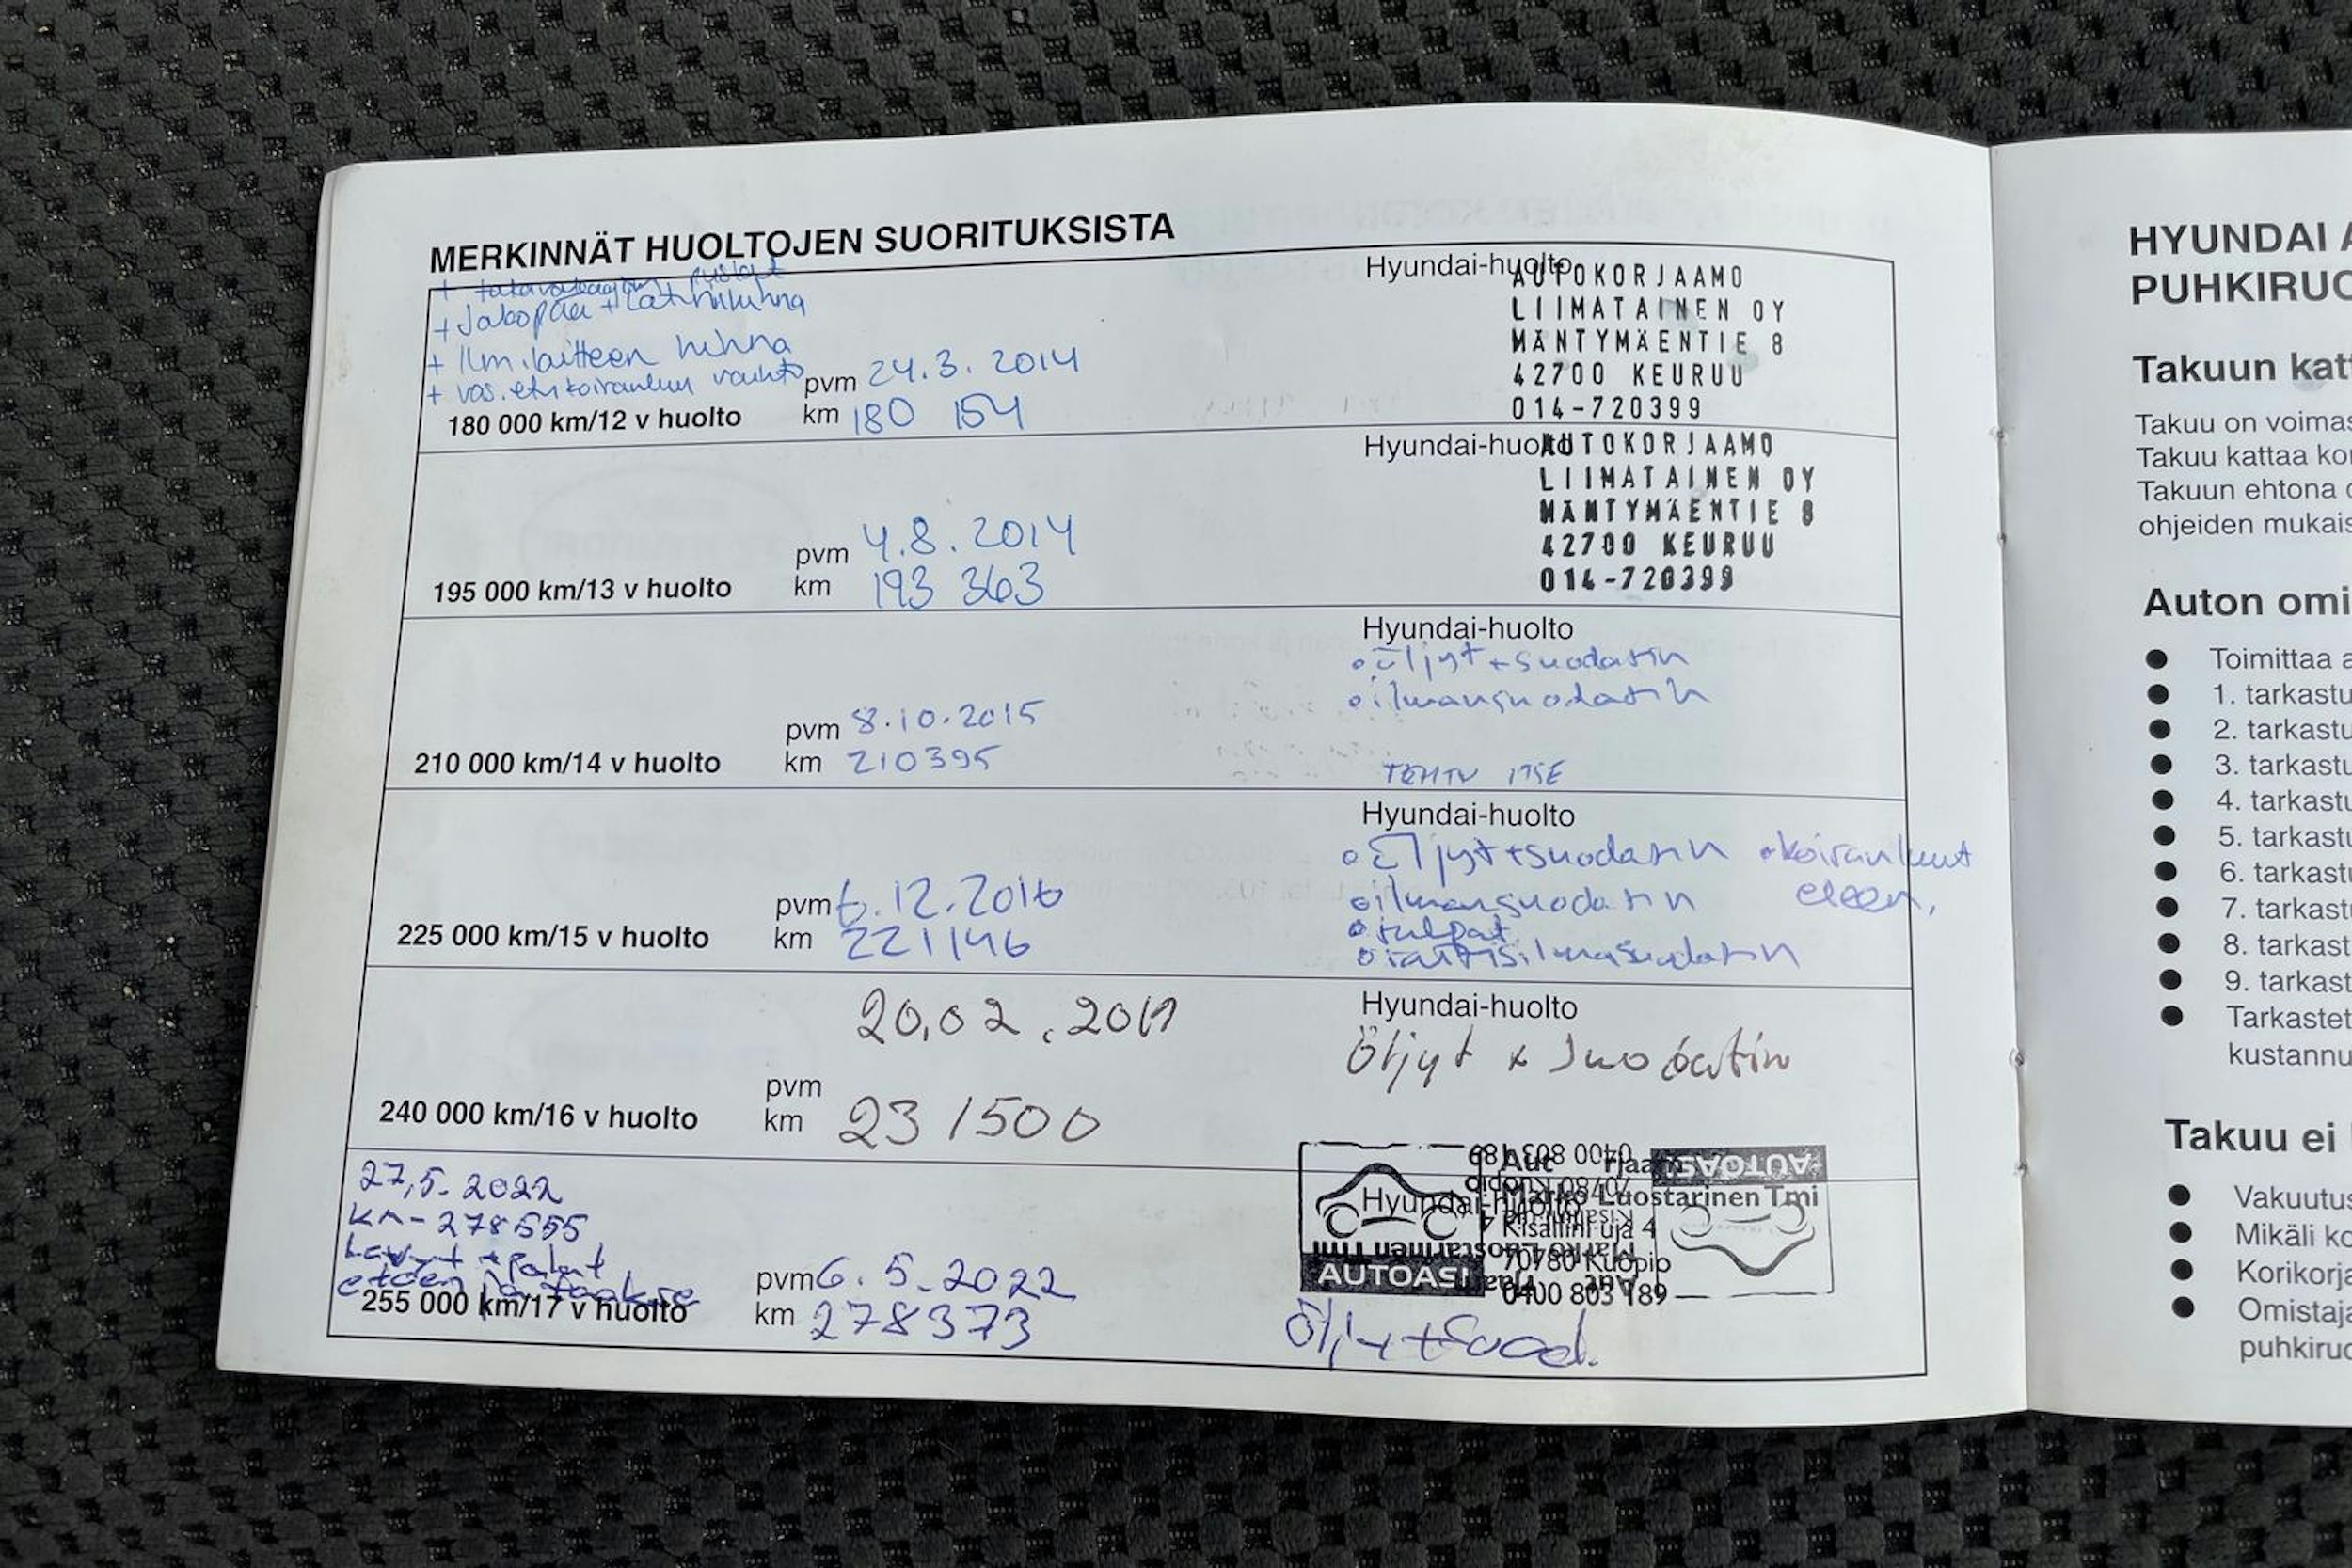 MERKINNÄT HUOLTOJEN SUORITUKSISTA
+ Jakopää + Laturihihna
+ Ilm.laitteen hihna
+ vas. etukoiranluun vaihto
180 000 km/12 v huolto
pvm 24.3.2014
km 180 154
Hyundai-huolto
AUTOKORJAAMO
LIIMATAINEN OY
MÄNTYMÄENTIE 8
42700 KEURUU
014-720399
195 000 km/13 v huolto
pvm 4.8.2014
km 193 363
Hyundai-huolto
AUTOKORJAAMO
LIIMATAINEN OY
MÄNTYMÄENTIE 8
42700 KEURUU
014-720399
210 000 km/14 v huolto
pvm 8.10.2015
km 210395
Hyundai-huolto
o öljyt + suodatin
o ilmansuodatin
TEHTY ITSE
225 000 km/15 v huolto
pvm 6.12.2016
km 221146
Hyundai-huolto
o Öljyt + suodatin o koiranluut
o ilmansuodatin eteen.
o tulpat
o raitisilmasuodatin
240 000 km/16 v huolto
20.02.2019
pvm
km 231500
Hyundai-huolto
Öljyt + Suodatin
27.5.2022
km - 278555
Levyt + palat
eteen ja taakse
255 000 km/17 v huolto
pvm 6.5.2022
km 278373
Hyundai-huolto
AUTOASI
Marko Luostarinen Tmi
Kisällinkuja 4
70780 Kuopio
0400 803 189
AUTOASI
Öljy + Suod.
HYUNDAI A
PUHKIRUO
Takuun katt
Takuu on voimas
Takuu kattaa kor
Takuun ehtona o
ohjeiden mukais
Auton omi
● Toimittaa a
● 1. tarkastu
● 2. tarkastu
● 3. tarkastu
● 4. tarkastu
● 5. tarkastu
● 6. tarkastu
● 7. tarkastu
● 8. tarkast
● 9. tarkast
● Tarkastet
kustannu
Takuu ei
● Vakuutus
● Mikäli ko
● Korikorja
● Omistaja
puhkiruo